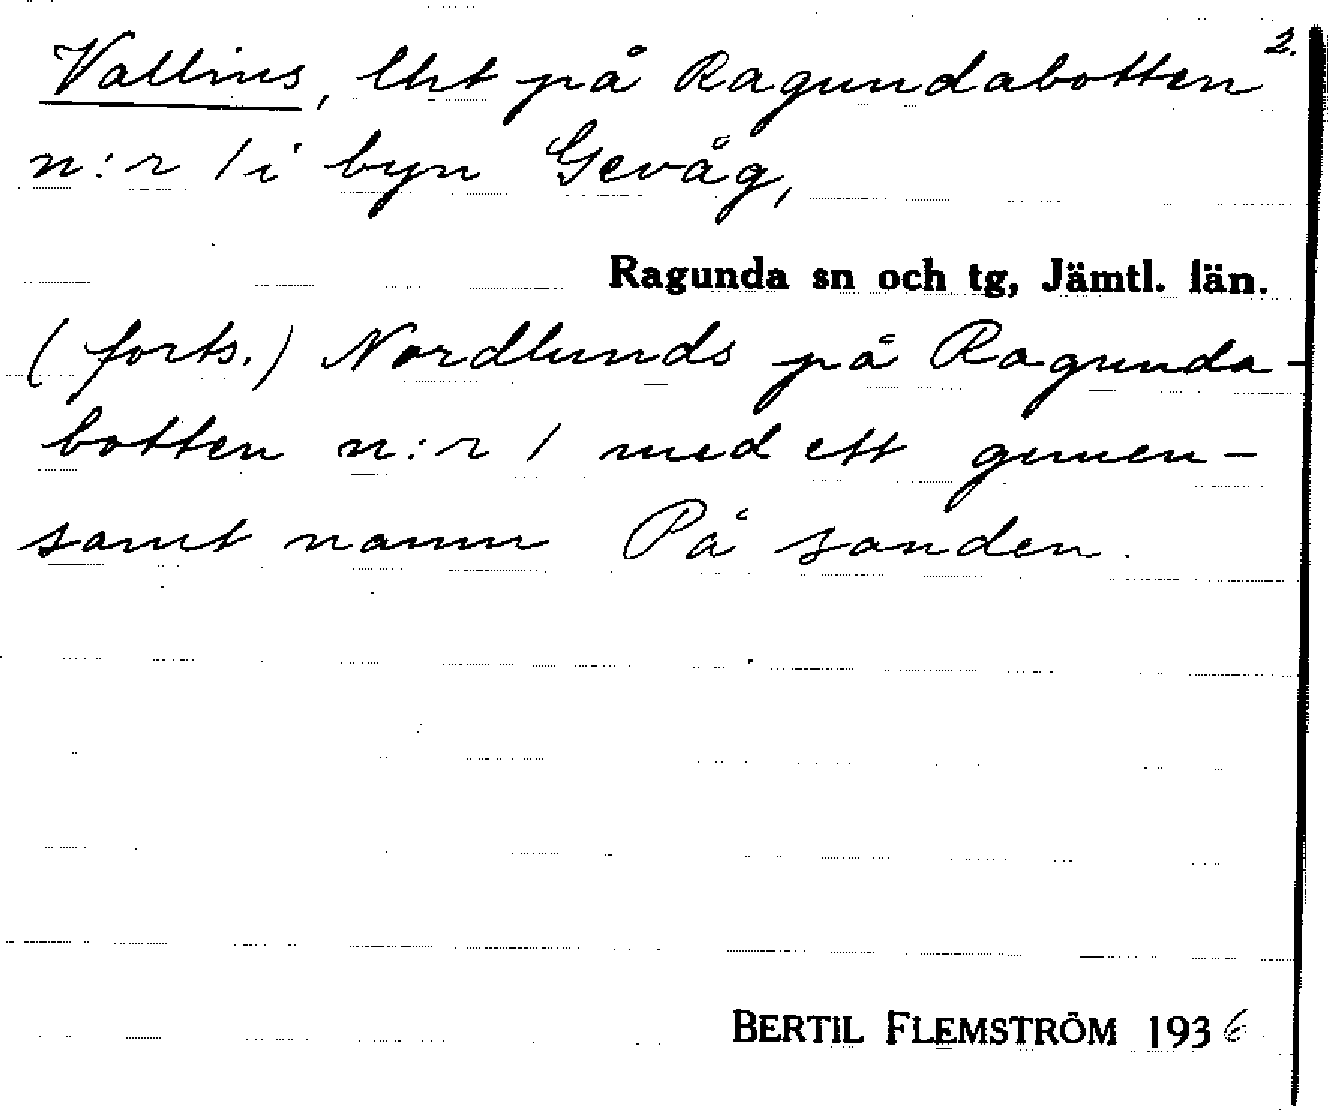 2.
Vallins, lht på Ragundabotten
n:r 1 i byn Gevåg,
Ragunda sn och tg, Jämtl. län.
(forts.) Nordlunds på Ragunda-
botten n:r 1 med ett gemen-
samt namn På sanden.
BERTIL FLEMSTRÖM 1936